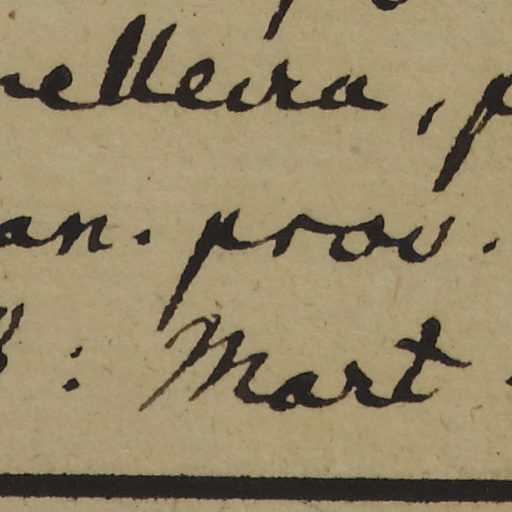 elleira, p
an. prov.
: Mart.